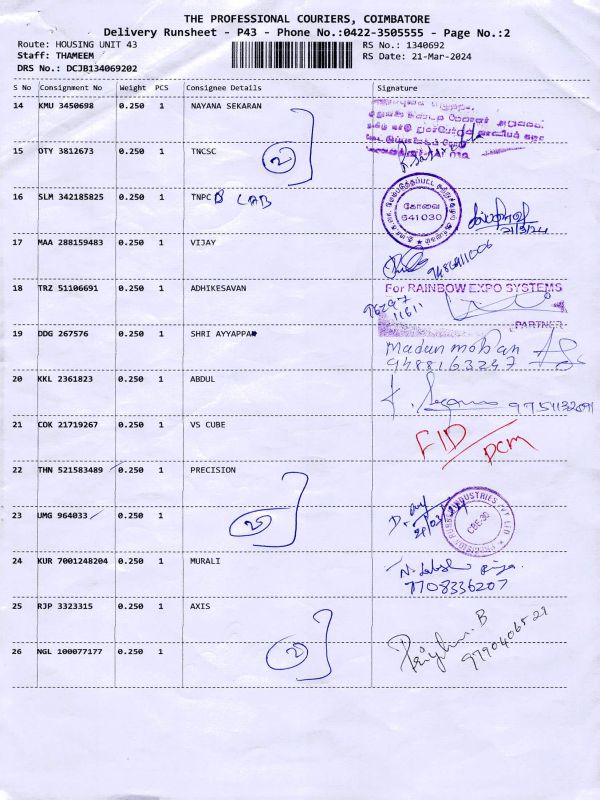 THE PROFESSIONAL COURIERS, COIMBATORE
Delivery Runsheet - P43 - Phone No.:0422-3505555 - Page No.:2
Route: HOUSING UNIT 43
Staff: THAMEEM
DRS No.: DCJB134069202
RS No.: 1340692
RS Date: 21-Mar-2024
S No Consignment No Weight PCS Consignee Details Signature
14 KMU 3450698 0.250 1 NAYANA SEKARAN
15 OTY 3812673 0.250 1 TNCSC
2
16 SLM 342185825 0.250 1 TNPCB LAB
கோவை
641030
21/3/24
17 MAA 288159483 0.250 1 VIJAY
18 TRZ 51106691 0.250 1 ADHIKESAVAN
For RAINBOW EXPO SYSTEMS
96297
11611
PARTNER
19 DDG 267576 0.250 1 SHRI AYYAPPA
Madan mohan
9488163247
20 KKL 2361823 0.250 1 ABDUL
21 COK 21719267 0.250 1 VS CUBE
FID
DCM
22 THN 521583489 0.250 1 PRECISION
23 UMG 964033 0.250 1
2
CBE-30
24 KUR 7001248204 0.250 1 MURALI
7708336207
25 RJP 3323315 0.250 1 AXIS
26 NGL 100077177 0.250 1
2